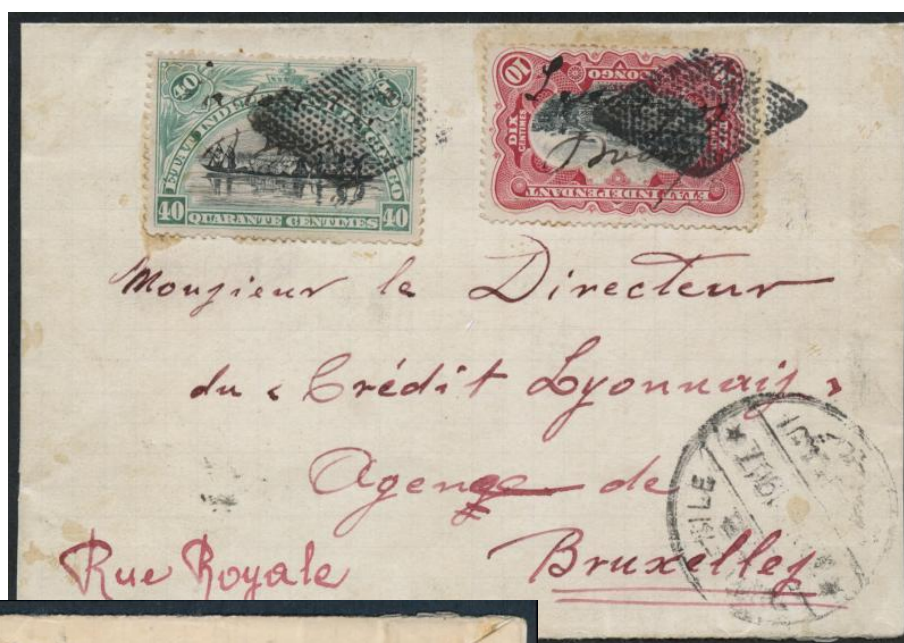 40
ETAT INDEPENDANT DU CONGO
40 QUARANTE CENTIMES 40
10
CONGO
DIX CENTIMES
DIX
ETAT INDEPENDANT
Monsieur le Directeur
du « Crédit Lyonnais »
Agence de
Bruxelles
Rue Royale
NILE